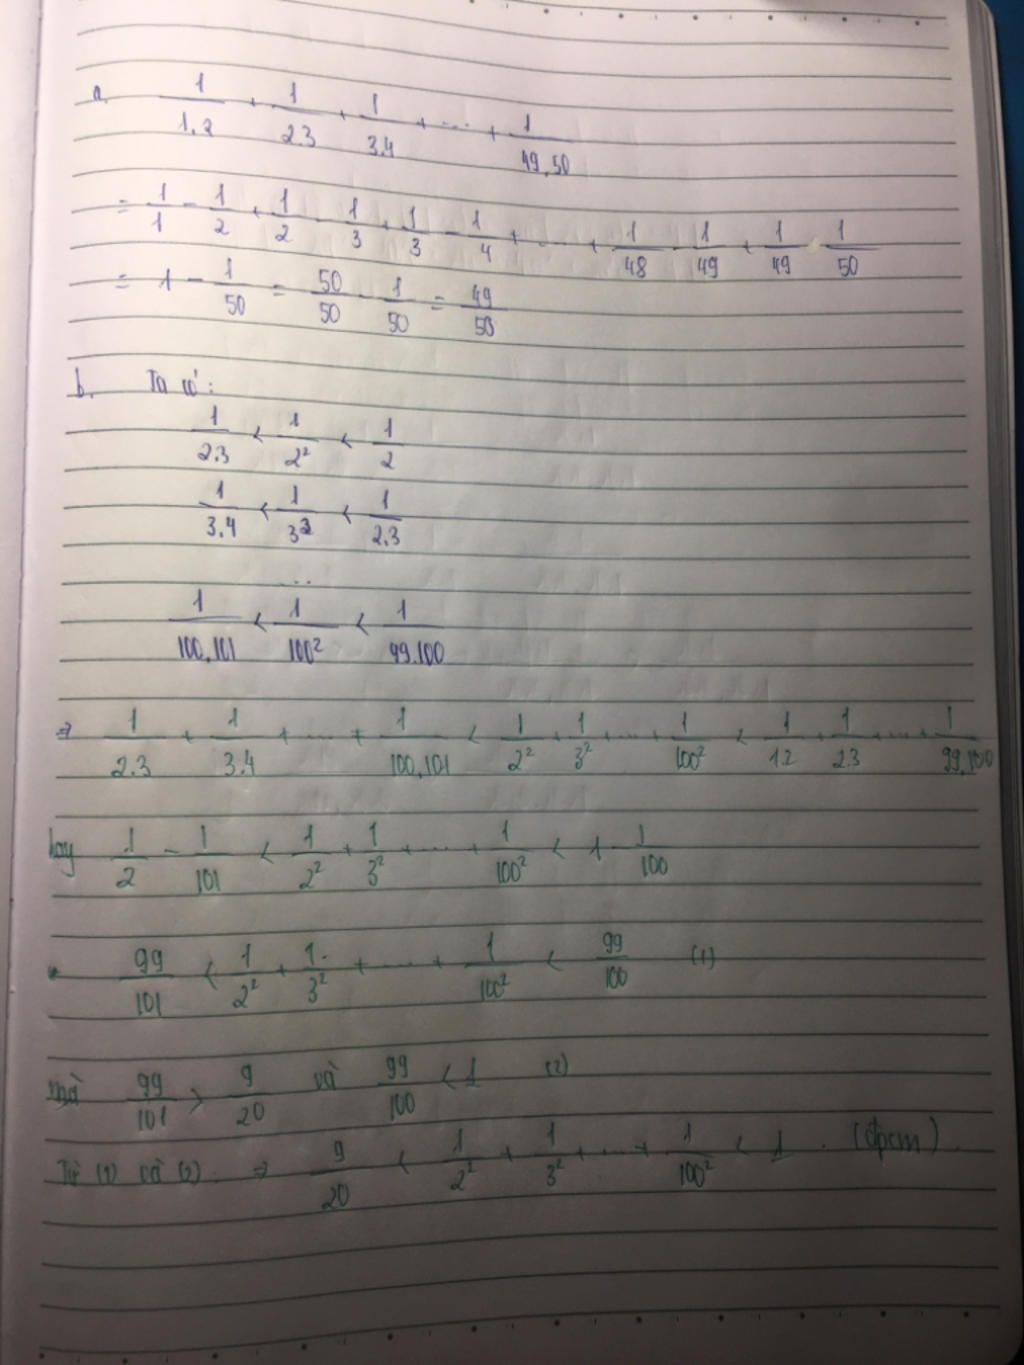 a. 1/1.2 + 1/2.3 + 1/3.4 + ... + 1/49.50
= 1/1 - 1/2 + 1/2 - 1/3 + 1/3 - 1/4 + ... + 1/48 - 1/49 + 1/49 - 1/50
= 1 - 1/50 = 50/50 - 1/50 = 49/50
b. Ta có:
1/2.3 < 1/2² < 1/2
1/3.4 < 1/3² < 1/2.3
...
1/100.101 < 1/100² < 1/99.100
⇒ 1/2.3 + 1/3.4 + ... + 1/100.101 < 1/2² + 1/3² + ... + 1/100² < 1/1.2 + 1/2.3 + ... + 1/99.100
hay 1/2 - 1/101 < 1/2² + 1/3² + ... + 1/100² < 1 - 1/100
99/101 < 1/2² + 1/3² + ... + 1/100² < 99/100 (1)
mà 99/101 > 9/20 và 99/100 < 1 (2)
Từ (1) và (2) ⇒ 9/20 < 1/2² + 1/3² + ... + 1/100² < 1. (đpcm).